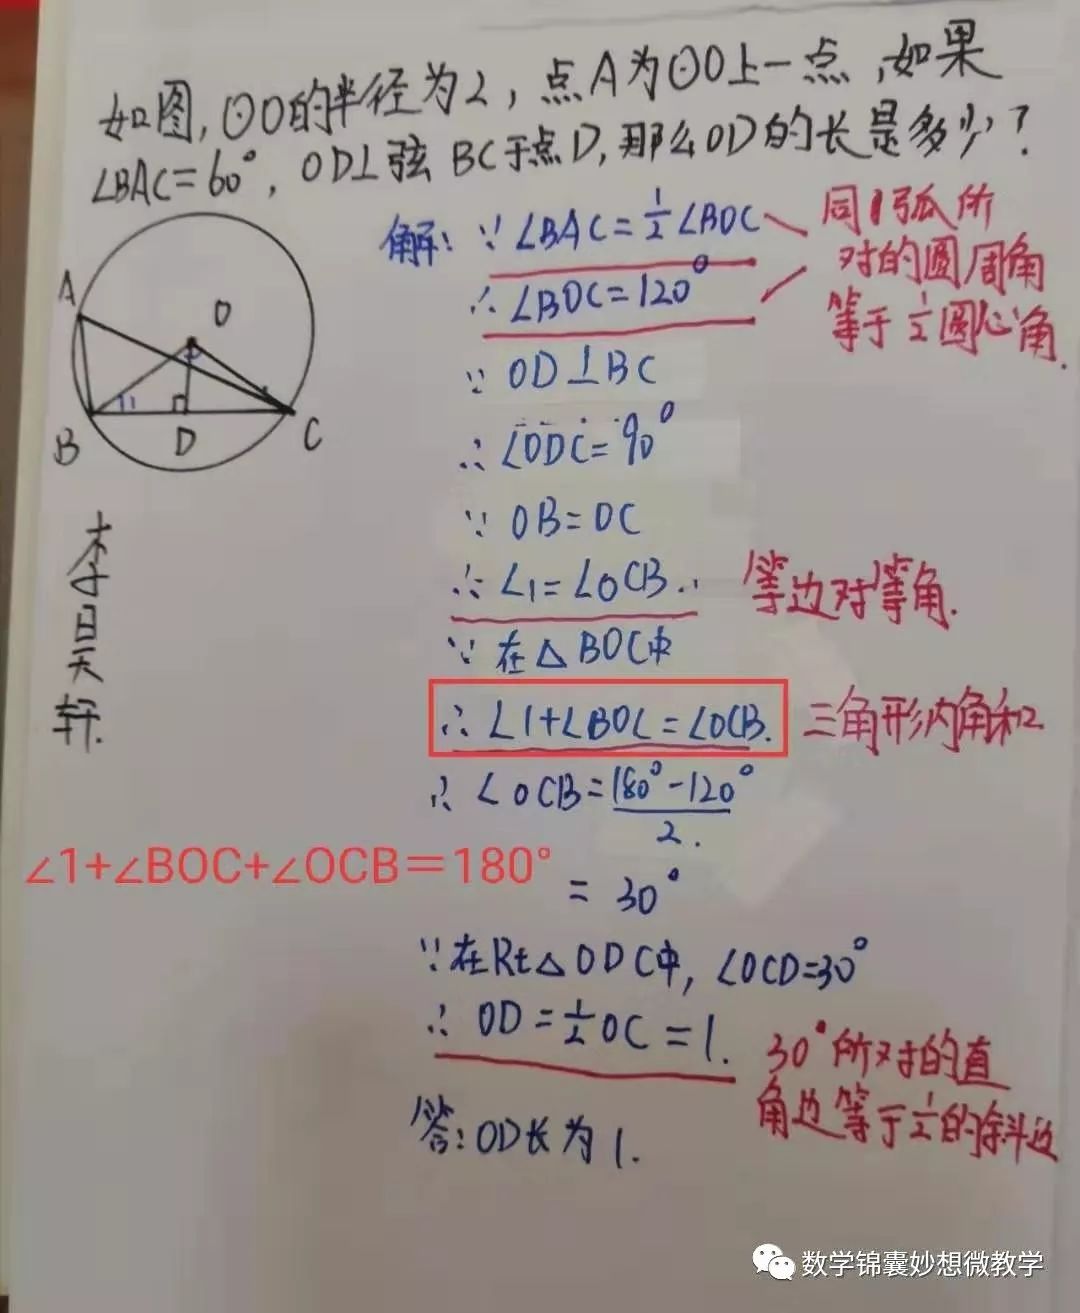 如图,⊙O的半径为2,点A为⊙O上一点,如果
∠BAC=60°,OD⊥弦BC于点D,那么OD的长是多少?
A
O
B
D
C
李昊轩.
解:∵∠BAC=1/2∠BOC
同弧所
对的圆周角
等于1/2圆心角.
∴∠BOC=120°
∵OD⊥BC
∴∠ODC=90°
∵OB=OC
∴∠1=∠OCB.
等边对等角.
∵在△BOC中
∴∠1+∠BOC=∠OCB.
三角形内角和
∴∠OCB=(180°-120°)/2.
∠1+∠BOC+∠OCB=180°
=30°
∵在Rt△ODC中,∠OCD=30°
∴OD=1/2OC=1.
30°所对的直
角边等于1/2的斜边
答:OD长为1.
数学锦囊妙想微教学